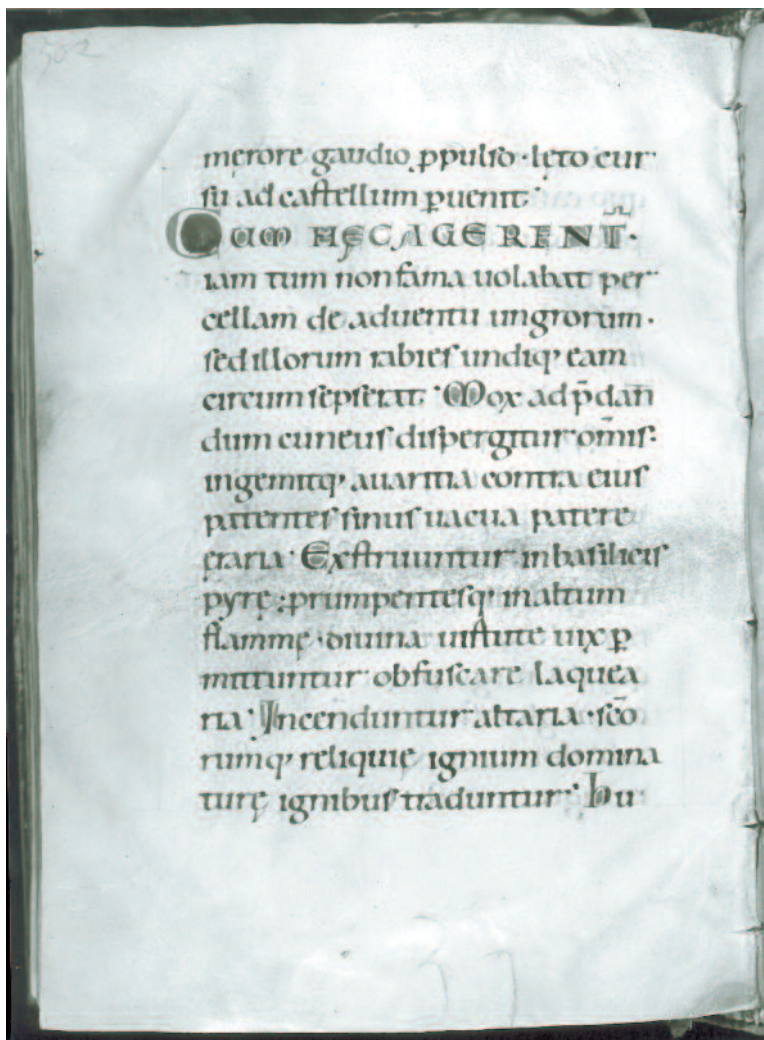 502
męrore gaudio ꝓpulso · lęto cur
su ad castellum ꝑuenit;
CUM HĘC AGERENT̅·
iam tum non fama uolabat per
cellam de aduentu ungrorum·
sed illorum rabies undiq; eam
circum sępserat. Mox ad p̄dan̄
dum cuneus dispergitur om̄is:
ingemitq; auaritia contra eius
patentes sinus uacua patere
ęraria· Exstruuntur in basilicis
pyrę; prumpentesq; in altum
flammę· diuina uirtute uix ꝑ
mittuntur obfuscare laquea
ria· Incenduntur altaria· sc̄o
rumq; reliquie ignium domina
turę ignibus traduntur· hu